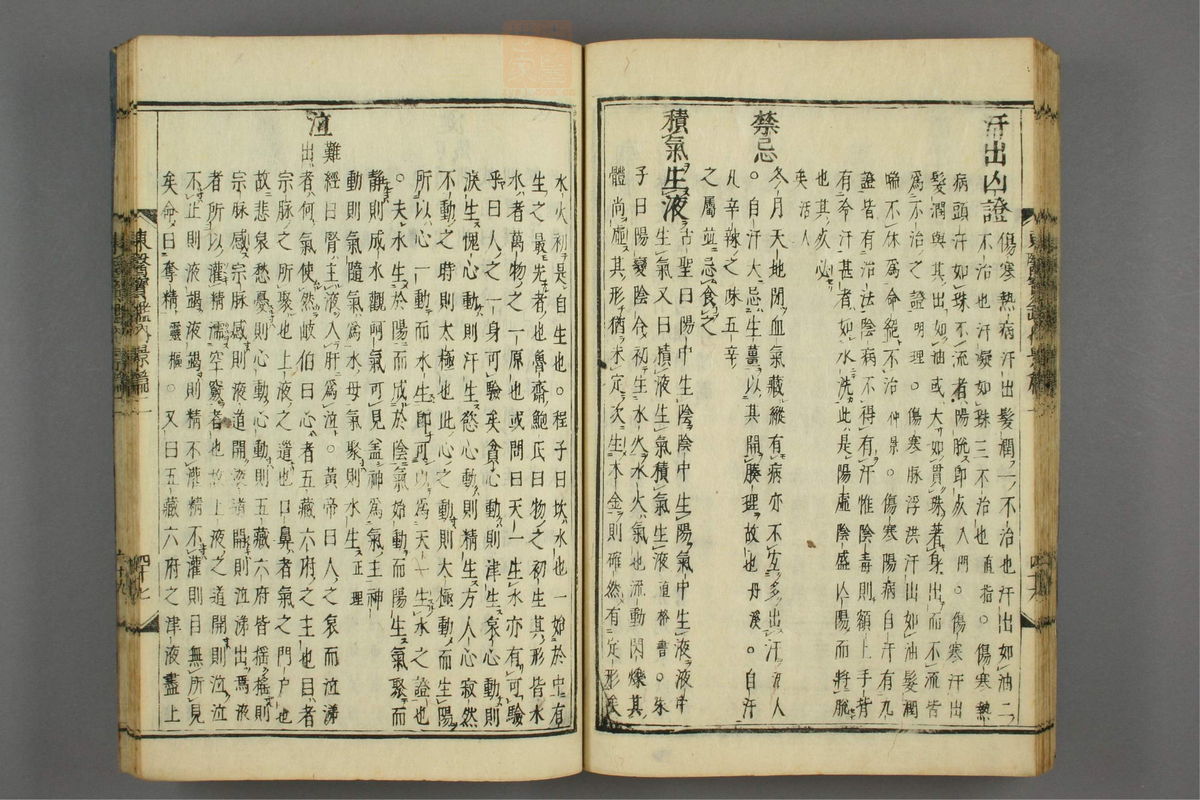 汗出凶證
傷寒熱病汗出髮潤一不治也汗出如油二
不治也汗凝如珠三不治也直指○傷寒熱
病頭汗如珠不流者陽脫即死入門○傷寒汗出
髮潤與其出如油或大如貫珠著身出而不流皆
爲不治之證明理○傷寒脉浮洪汗出如油髮潤
喘不休爲命絕不治仲景○傷寒陽病自汗有九
證皆有治法陰病不得有汗惟陰毒則額上手背
有冷汗甚者如水洗此是陽虛陰盛以陽而將脫
也其死必
矣活人
禁忌
冬月天地閉血氣藏縱有病亦不宜多出汗活人
○自汗大忌生薑以其開腠理故也丹溪○自汗
凡辛辣之味五辛
之屬並忌食之
積氣生液
古聖曰陽中生陰陰中生陽氣中生液液中
生氣又曰積液生氣積氣生液道樞書○朱
子曰陽變陰合初生水火水火氣也流動閃爍其
體尚虛其形猶未定次生木金則確然有定形矣
水火初是自生也○程子曰坎水也一始於中有
生之最先者也魯齋鮑氏曰物之初生其形皆水
水者萬物之一原也或問曰天一生水亦有可驗
乎曰人之一身可驗矣貪心動則津生哀心動則
淚生愧心動則汗生慾心動則精生方人心寂然
不動之時則太極也此心之動則太極動而生陽
所以心一動而水生即可以爲天一生水之證也
○夫水生於陽而成於陰氣始動而陽生氣聚而
靜則成水觀呵氣可見盖神爲氣主神
動則氣隨氣爲水母氣聚則水生正理
泣
難
經曰腎主液入肝爲泣○黃帝曰人之哀而泣涕
出者何氣使然岐伯曰心者五藏六府之主也目者
宗脉之所聚也上液之道也口鼻者氣之門户也
故悲哀愁憂則心動心動則五藏六府皆搖搖則
宗脉感宗脉感則液道開液道開則泣涕出焉液
者所以灌精濡空竅者也故上液之道開則泣泣
不止則液竭液竭則精不灌精不灌則目無所見
矣命曰奪精靈樞○又曰五藏六府之津液盡上
東醫寶鑑內景篇二
四十七